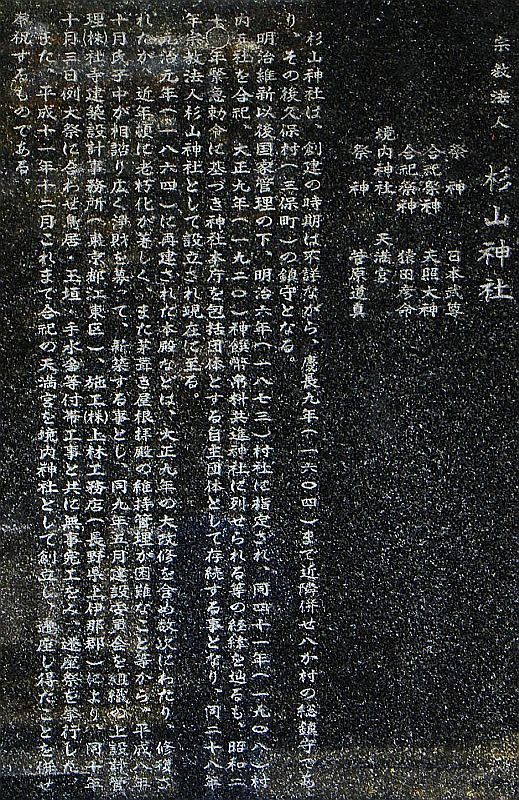 宗教法人 杉山神社
祭神 日本武尊
合祀祭神 天照大神
合祀祭神 猿田彦命
境内神社 天満宮
祭神 菅原道真
杉山神社は、創建の時期は不詳ながら、慶長九年(一六〇四)まで近隣併せ八か村の総鎮守であ
り、その後久保村(三保町)の鎮守となる。
明治維新以後国家管理の下、明治六年(一八七三)村社に指定され、同四十一年(一九〇八)村
内五社を合祀、大正九年(一九二〇)神饌幣帛料共進神社に列せられる等の経緯を辿るも、昭和二
十〇年緊急勅令に基づき神社本庁を包括団体とする自主団体として存続する事となり、同二十八年
年宗教法人杉山神社として設立され現在に至る。
元治元年(一八六四)に再建された本殿などは、大正九年の大改修を含め数次にわたり、修復さ
れたが、近年頓に老朽化が著しく、また茅葺き屋根拝殿の維持管理が困難なこと等から、平成八年
十月氏子中が相諮り広く浄財を募って、新築する事とし、同九年五月建設委員会を組織の上設計管
理(株)社寺建築設計事務所(東京都江東区)、施工(株)上林工務店(長野県上伊那郡)により、同十年
十月三日例大祭に合わせ鳥居・玉垣・手水舎等付帯工事と共に無事完工をみ、遷座祭を挙行した。
また、平成十一年十二月これまで合祀の天満宮を境内神社として創立し、遷座し得たことを併せ
奉祝するものである。